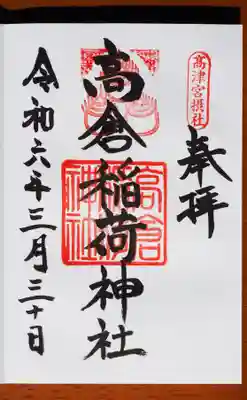 高津宮摂社
奉拝
高倉稲荷神社
高倉稲荷神社
令和六年三月三十日